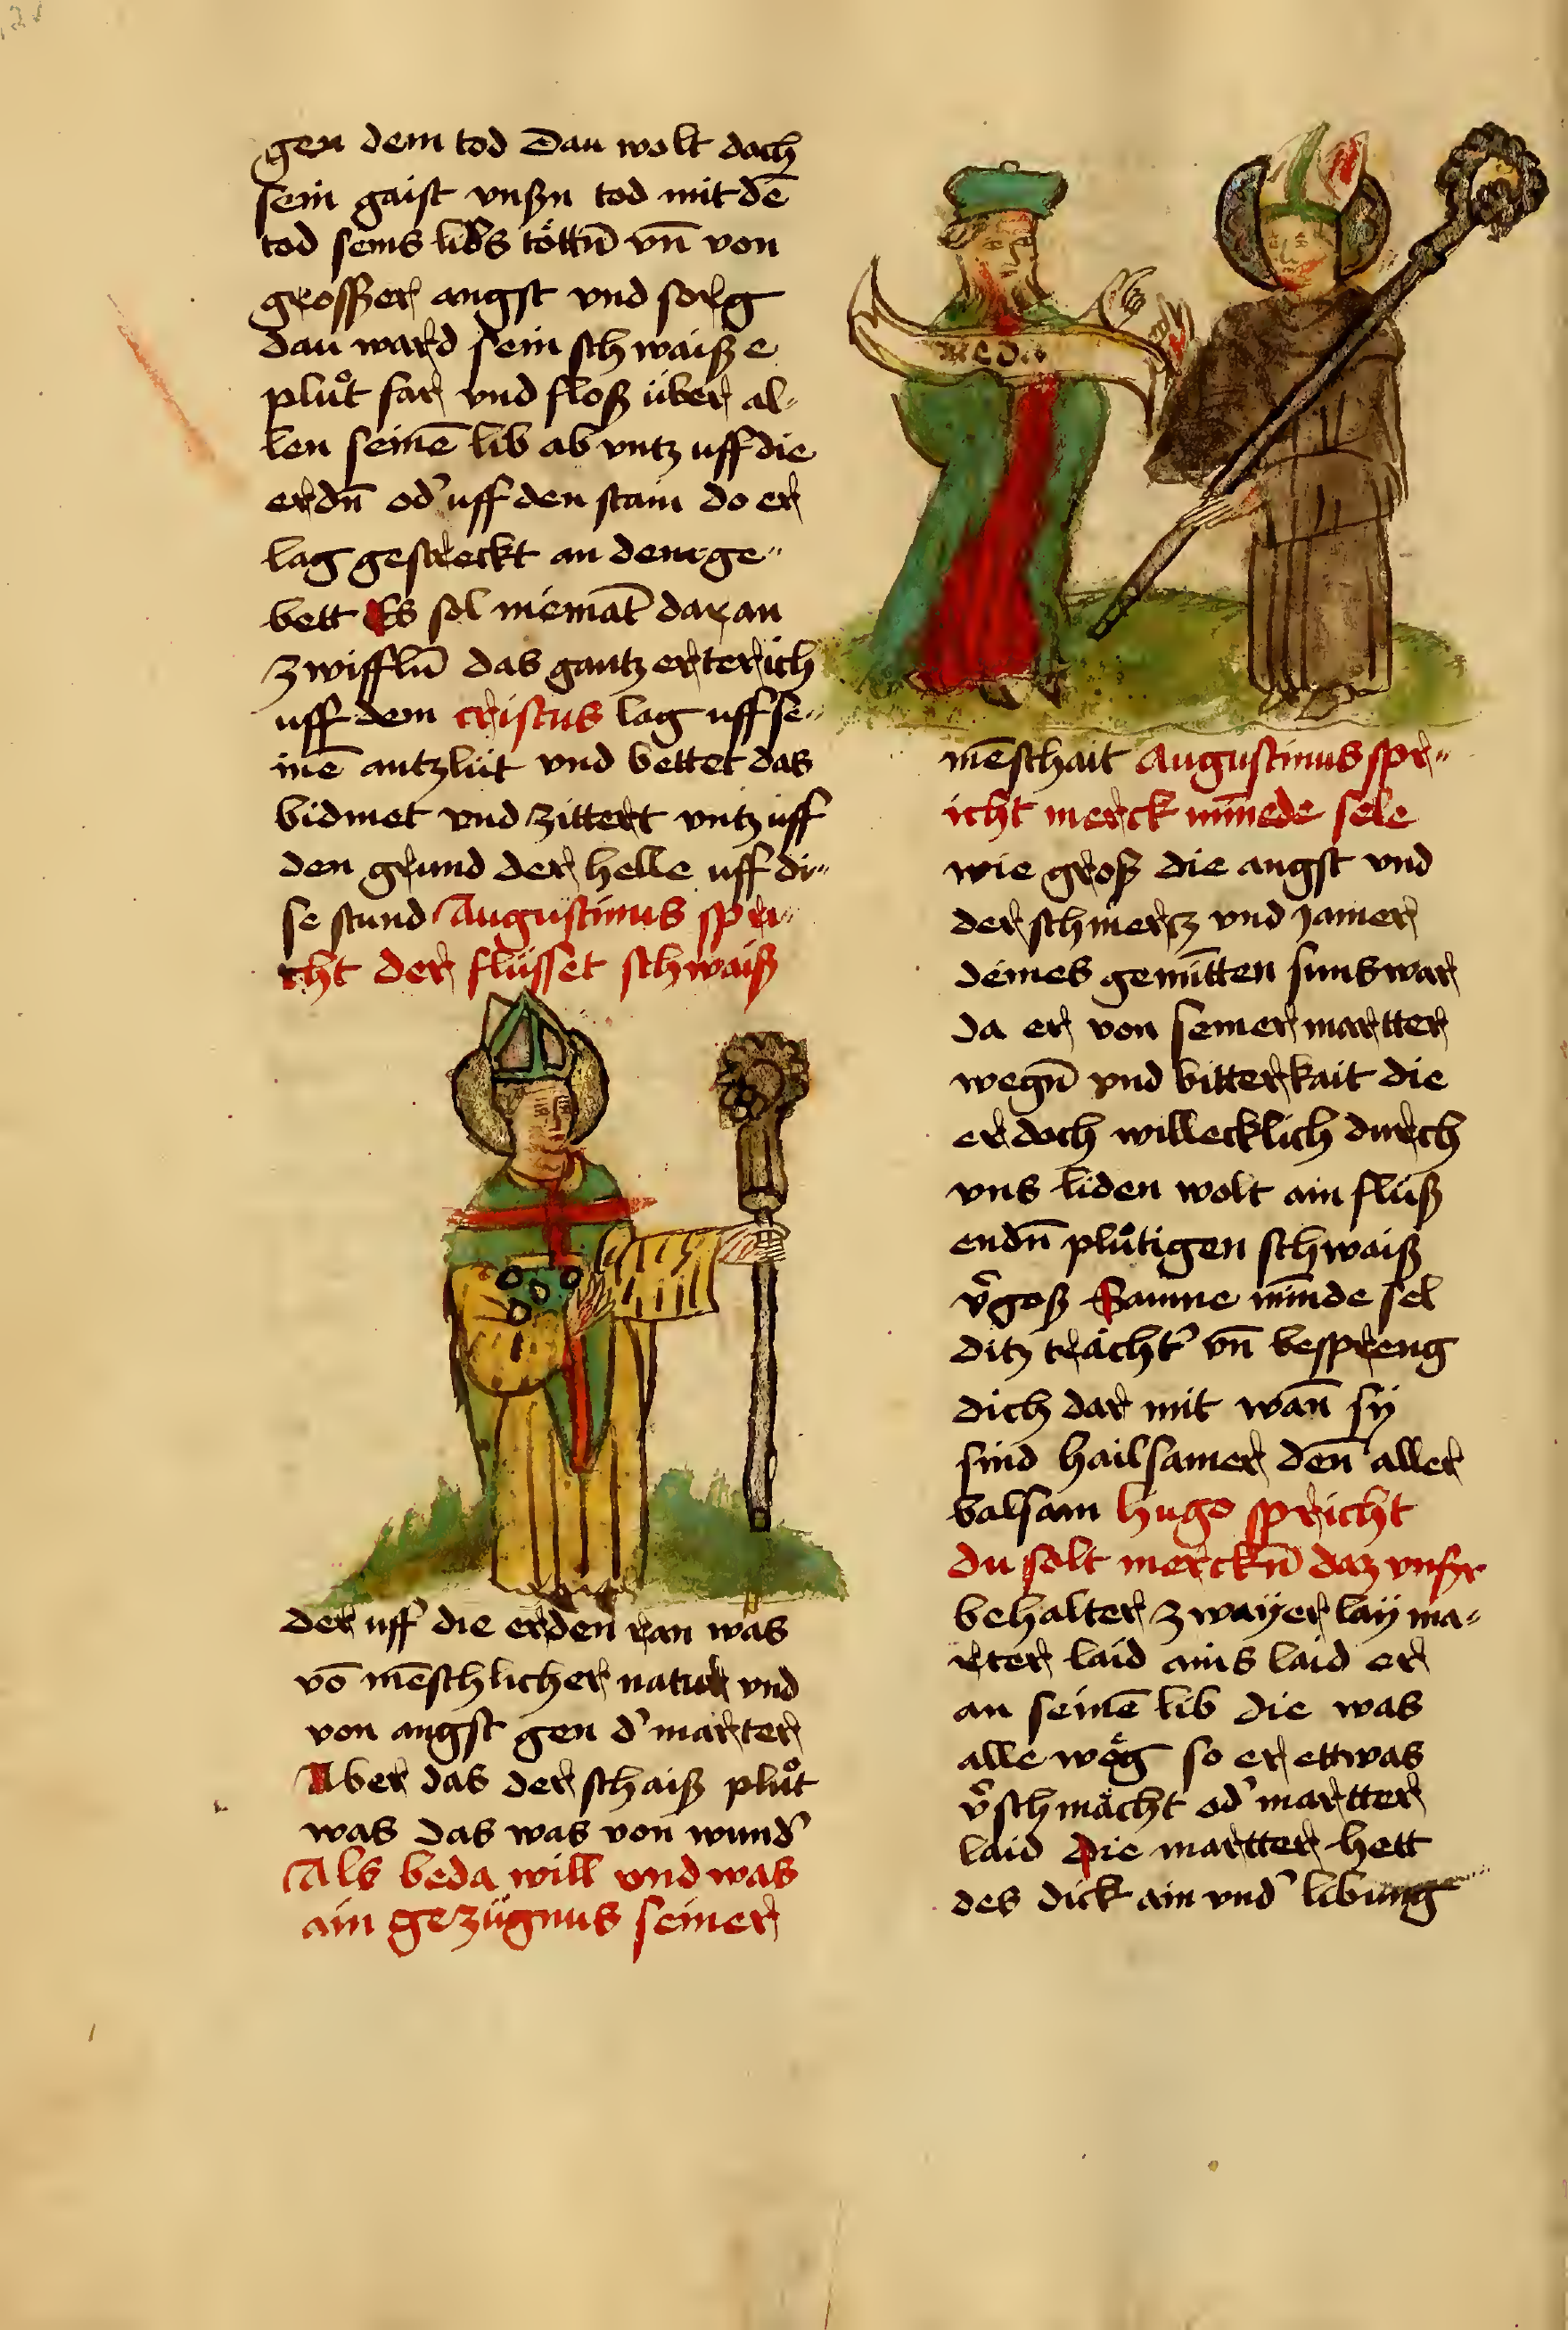 gen dem tod Dau wolt doch
sein gaist vnßn tod mit dē
tod seins libs töttn̄ vn̄ von
grosser angst vnd sorg
dau ward sein schwaiß e
plůt far vnd floß über al-
len seinē lib ab vntz uff die
erdn̄ od' uff den stain do er
lag gestreckt an dem ge-
bett Es sol niemāt daran
zwiffln̄ das gantz erterich
uff dem cristus lag uff se-
inē antzlüt vnd bettet das
bidmet vnd zittert vntz uff
den grund der helle uff di-
se stund Augustinus spri-
cht der flüsset schwaiß
der uff die erden ran was
vō mēschlicher natur vnd
von angst gen d' marter
Aber das der schaiß plůt
was das was von wund'
Als beda will vnd was
ain gezügnus seiner
beda
mēschait Augustinus spr-
icht merck min̄ede sele
wie groß die angst vnd
der schmertz vnd jamer
deines gemīten suns war
da er von seiner martter
wegn̄ vnd bitterkait die
er doch willecklich durch
vns liden wolt ain flüß
endn̄ plůtigen schwaiß
v̄goß Samne min̄de sel
ditz trächt' vn̄ bespreng
dich dar mit wan̄ sy
sind hailsamer den̄ aller
balsam hugo spricht
du solt merckn̄ daz vnser
behalter zwayer lay ma-
rter laid ains laid er
an seinē lib die was
alle wög so er ettwas
v̄schmächt od' martter
laid Die martter hett
des dick ain vnd' libung